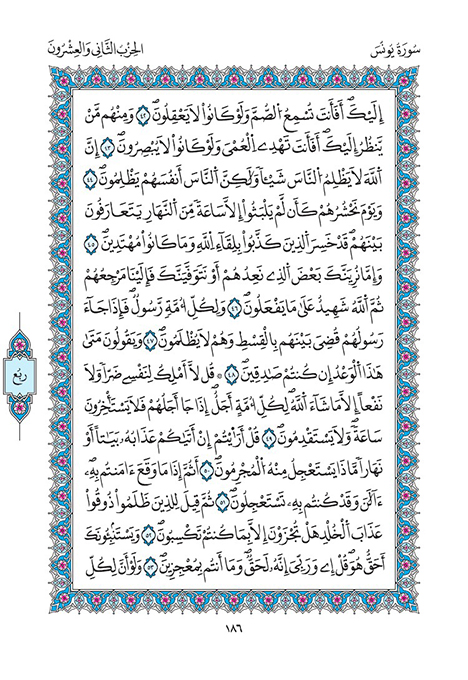 سُورَةُ يُونُسَ
الحِزْبُ الثَّانِي وَالعِشْرُونَ
إِلَيْكَۖ أَفَأَنتَ تُسْمِعُ الصُّمَّ وَلَوْ كَانُواْ لَا يَعْقِلُونَۖ ٤٢ وَمِنْهُم مَّنْ
يَنظُرُ إِلَيْكَۖ أَفَأَنتَ تَهْدِے الْعُمْيَ وَلَوْ كَانُواْ لَا يُبْصِرُونَۖ ٤٣ إِنَّ
اَللَّهَ لَا يَظْلِمُ النَّاسَ شَيْـٔاً وَلَٰكِنَّ النَّاسَ أَنفُسَهُمْ يَظْلِمُونَۖ ٤٤
وَيَوْمَ نَحْشُرُهُمْ كَأَن لَّمْ يَلْبَثُواْ إِلَّا سَاعَةً مِّنَ النَّهَارِ يَتَعَارَفُونَ
بَيْنَهُمْۖ قَدْ خَسِرَ الذِينَ كَذَّبُواْ بِلِقَآءِ اِللَّهِ وَمَا كَانُواْ مُهْتَدِينَۖ ٤٥
وَإِمَّا نُرِيَنَّكَ بَعْضَ الذِے نَعِدُهُمْ أَوْ نَتَوَفَّيَنَّكَ فَإِلَيْنَا مَرْجِعُهُمْ
ثُمَّ اَللَّهُ شَهِيدٌ عَلَىٰ مَا يَفْعَلُونَۖ ٤٦ وَلِكُلِّ أُمَّةٍ رَّسُولٌۖ فَإِذَا جَآءَ
رَسُولُهُمْ قُضِيَ بَيْنَهُم بِالْقِسْطِ وَهُمْ لَا يُظْلَمُونَۖ ٤٧ وَيَقُولُونَ مَتَىٰ
هَٰذَا اَلْوَعْدُ إِن كُنتُمْ صَٰدِقِينَۖ ٤٨ ۞ قُل لَّا أَمْلِكُ لِنَفْسِے ضَرّاً وَلَا
نَفْعاً اِلَّا مَا شَآءَ اَللَّهُۖ لِكُلِّ أُمَّةٍ أَجَلٌۖ إِذَا جَا أَجَلُهُمْ فَلَا يَسْتَـٔخِرُونَ
سَاعَةً وَلَا يَسْتَقْدِمُونَۖ ٤٩ قُلَ اَرَٰٓيْتُمُۥٓ إِنْ أَتَىٰكُمْ عَذَابُهُۥ بَيَٰتاً أَوْ
نَهَاراً مَّاذَا يَسْتَعْجِلُ مِنْهُ الْمُجْرِمُونَۖ ٥٠ أَثُمَّ إِذَا مَا وَقَعَ ءَامَنتُم بِهِۦ
ءَآلَٰنَ وَقَدْ كُنتُم بِهِۦ تَسْتَعْجِلُونَۖ ٥١ ثُمَّ قِيلَ لِلذِينَ ظَلَمُواْ ذُوقُواْ
عَذَابَ اَلْخُلْدِ هَلْ تُجْزَوْنَ إِلَّا بِمَا كُنتُمْ تَكْسِبُونَۖ ٥٢ وَيَسْتَنۢبِـُٔونَكَ
أَحَقٌّ هُوَۖ قُلْ إِے وَرَبِّيَ إِنَّهُۥ لَحَقٌّۖ وَمَا أَنتُم بِمُعْجِزِينَۖ ٥٣ وَلَوْ أَنَّ لِكُلِّ
ربع
١٨٦